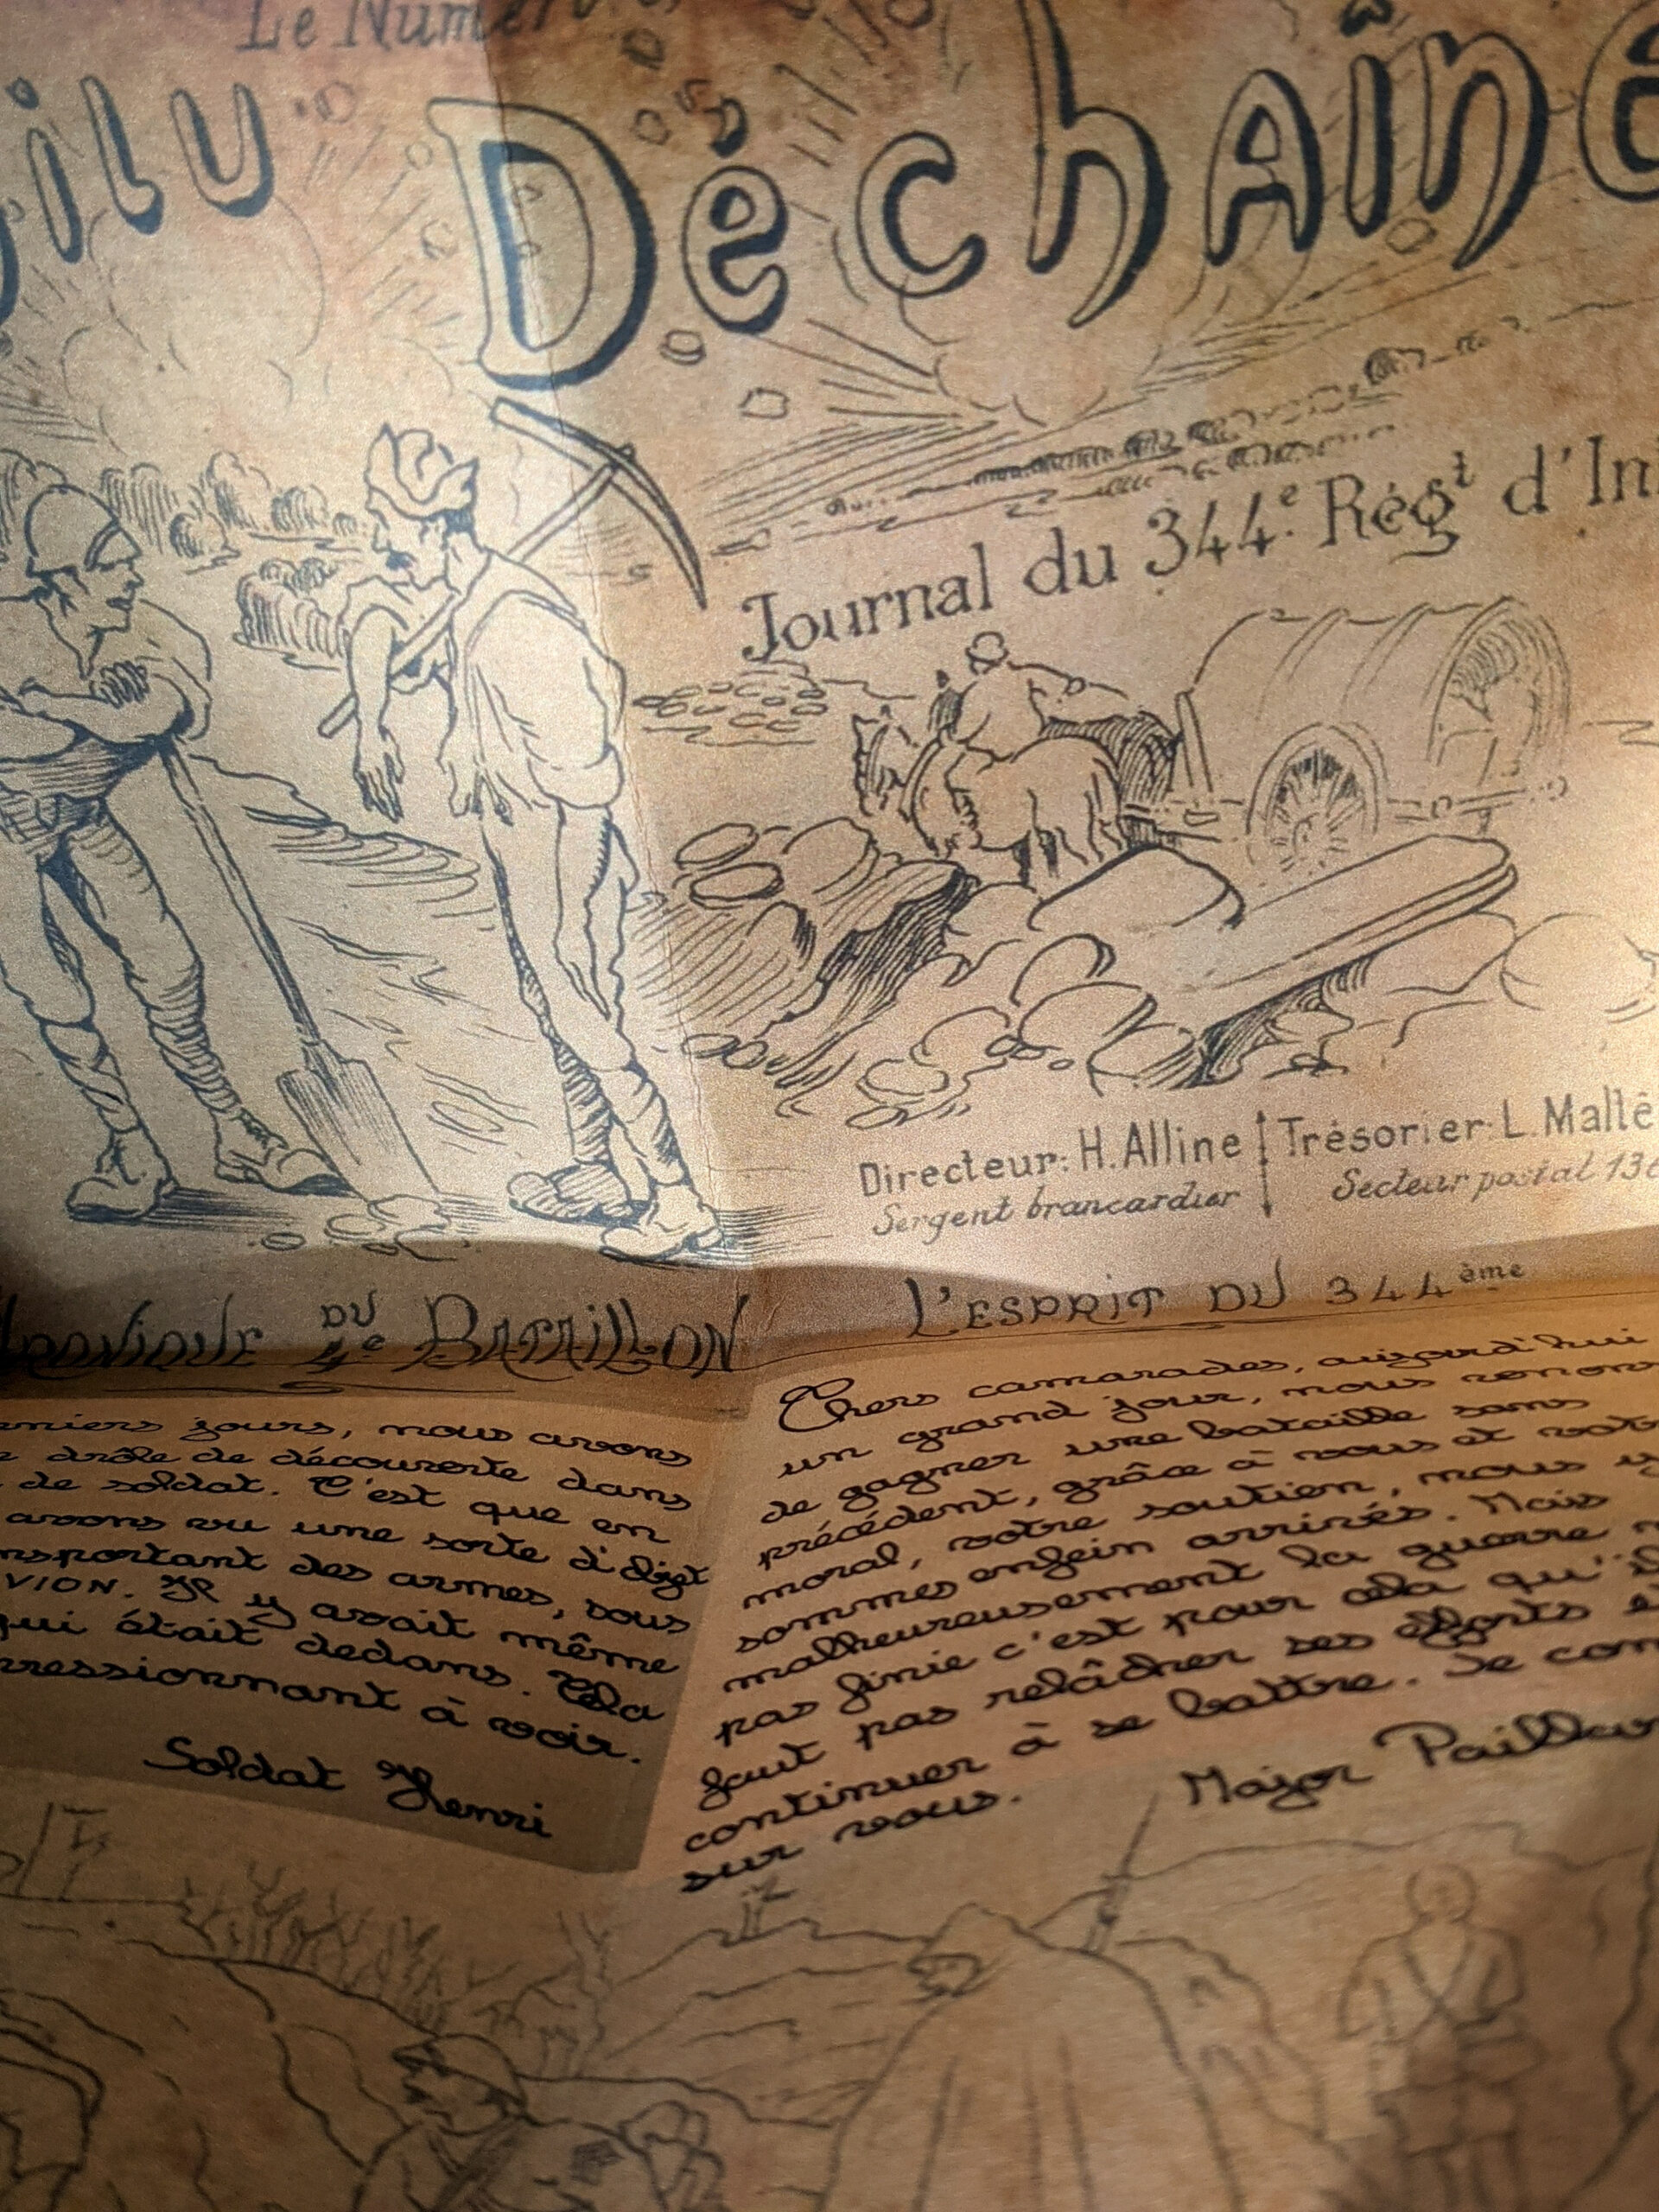 Le Numéro
ilu Déchainé
Journal du 344e Régt d'In
Directeur: H. Alline
Sergent brancardier
Trésorier: L. Mallé
Secteur postal 136
DU
4e BATAILLON
niers jours, nous avons
drôle de découverte dans
de soldat. C'est que en
avons vu une sorte d'objet
nsportant des armes, sous
VION. Il y avait même
qui était dedans. Cela
ressionnant à voir.
Soldat Henri
L'ESPRIT DU 344ème
Chers camarades, aujourd'hui
un grand jour, nous
de gagner une bataille sans
précédent, grâce à vous et
moral, votre soutien, nous
sommes enfein arrivés. Mais
malheureusement la guerre
pas finie c'est pour cela qu'il
faut pas relâcher ses efforts
continuer à se battre. Je
sur vous.
Major